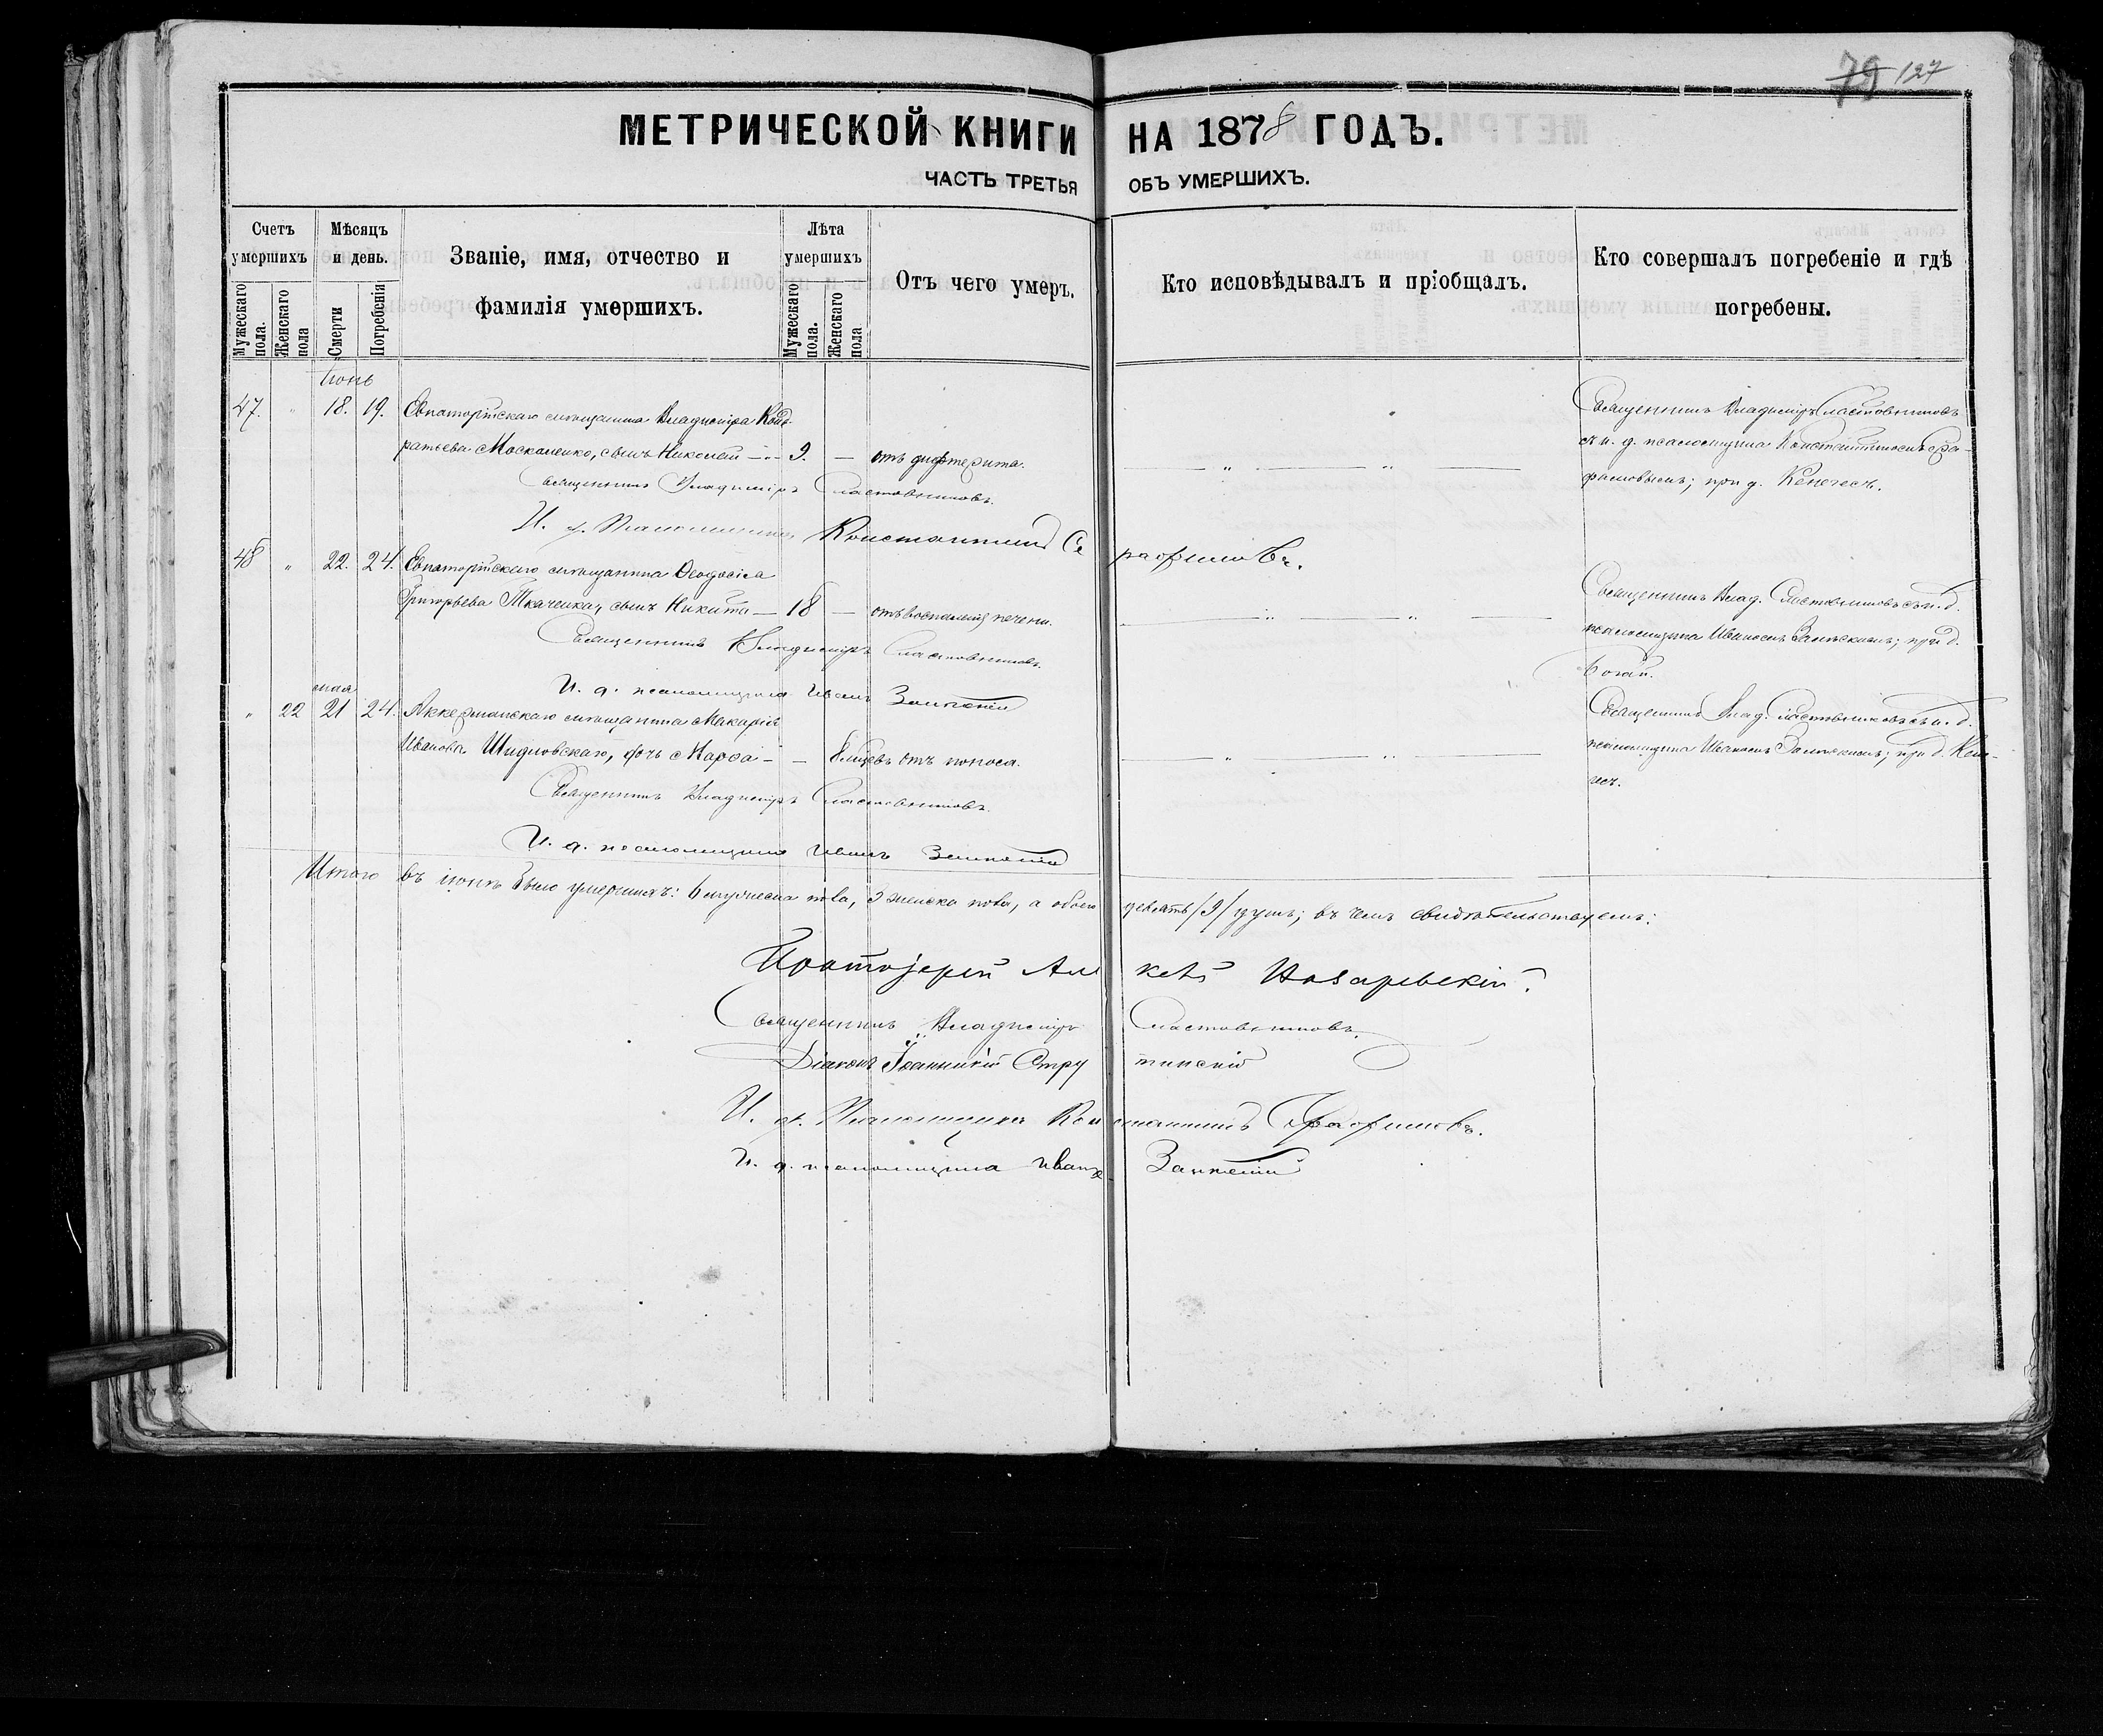 79 127
МЕТРИЧЕСКОЙ КНИГИ НА 1878 ГОДЪ.
ЧАСТЬ ТРЕТЬЯ ОБЪ УМЕРШИХЪ.
Счетъ умершихъ
Мужескаго пола.
Женскаго пола
Мѣсяцъ и день.
Смерти
Погребенія
Званіе, имя, отчество и
фамилія умершихъ.
Лѣта умершихъ
Мужескаго пола.
Женскаго пола
Отъ чего умеръ.
Кто исповѣдывалъ и пріобщалъ.
Кто совершалъ погребеніе и гдѣ
погребены.
Іюнь
47. " 18. 19. Евпаторійскаго мѣщанина Владиміра Конд-
ратьева Москаленко, сынъ Николай — 9. — отъ дифтерита.
Священникъ Владиміръ Сластовниковъ
съ и. д. псаломщика Константиномъ Сера-
фимовымъ; при д. Кенегесъ.
Священникъ Владиміръ Сластовниковъ.
И. д. Псаломщика Константинъ Серафимовъ.
48 " 22. 24. Евпаторійскаго мѣщанина Ѳеодосія
Григорьева Ткаченка, сынъ Никита — 18 — отъ воспаленія печени.
Священникъ Влад. Сластовниковъ съ и. д.
псаломщика Иваномъ ; при д.
Священникъ Владиміръ Сластовниковъ.
И. д. псаломщика Иванъ
мая
" 22 21 24. Аккерманскаго мѣщанина Макарія
Иванова Шидловскаго, дочь Марѳа — — 8 мѣсяцевъ отъ поноса.
Священникъ Влад. Сластовниковъ съ и. д.
псаломщика Иваномъ ; при д. Кене-
гесъ.
Священникъ Владиміръ Сластовниковъ.
И. д. псаломщика Иванъ
Итого въ іюнѣ было умершихъ: 6 мужеска пола, 3 женска пола, а обоего девять /9/ душъ; въ чемъ свидѣтельствуемъ:
Протоіерей Назаревскій.
Священникъ Владиміръ Сластовниковъ.
Діаконъ Іоанникій Струтинскій
И. д. Псаломщика Константинъ Серафимовъ.
И. д. псаломщика Иванъ